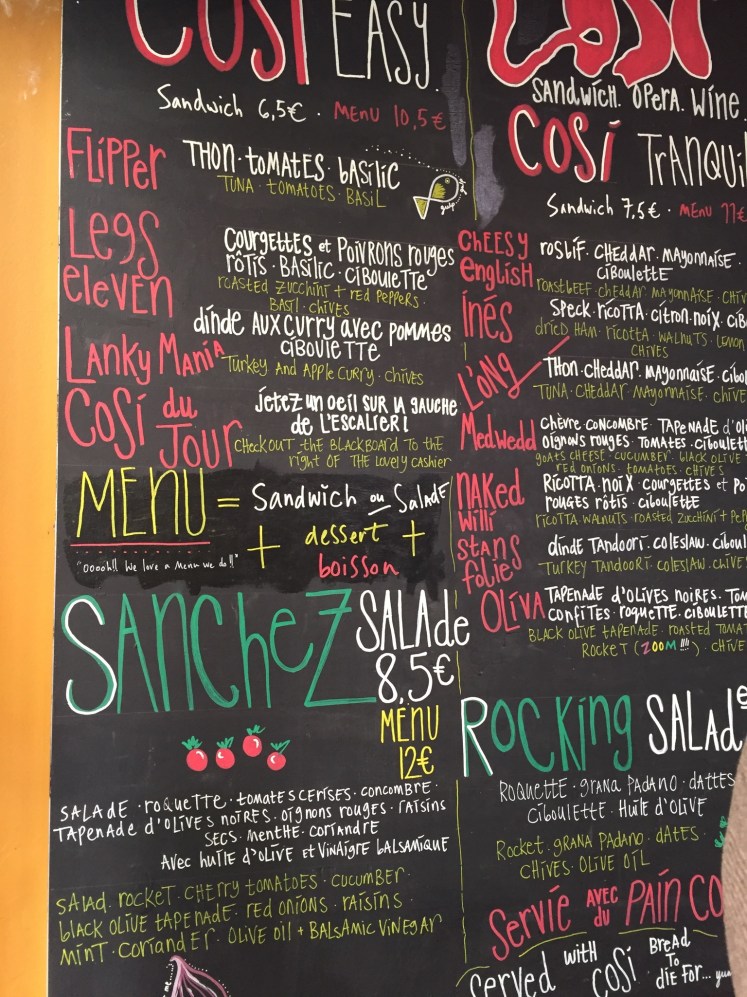 COSI EASY.
Sandwich 6,5€ · MENU 10,5€
FLIPPER
THON · TOMATES · BASILIC
TUNA · TOMATOES · BASIL
gulp
Legs eleven
COURGETTES et POIVRONS rouges
RÔTIS · BASILIC · CIBOULETTE
roasted zucchini + red peppers ·
BASIL · CHIVES
LANKY MANIA
dinde AUX CURRY AVEC POMMES
CIBOULETTE
Turkey AND APPLE CURRY · CHIVES
COSI du JOUR
JETEZ UN OEIL SUR LA GAUCHE
de L'ESCALIER!
CHECKOUT the BLACKBOARD TO THE
right OF THE lovely cashier
MENU = Sandwich ou SALADE
+ dessert +
boisson
"Ooooh!! We love a Menu we do!!"
SANCHEZ SALADE
8,5€
MENU
12€
SALADE · ROQUETTE · TOMATES CERISES · CONCOMBRE ·
TAPENADE d'OLIVES NOIRES · OIGNONS ROUGES · RAISINS
SECS · MENTHE · CORIANDRE
AVEC HUILE D'OLIVE ET VINAIGRE BALSAMIQUE
SALAD · ROCKET · CHERRY TOMATOES · CUCUMBER ·
BLACK OLIVE TAPENADE · RED ONIONS · RAISINS ·
MINT · CORIANDER · OLIVE OIL + BALSAMIC VINEGAR
me...
COSI
SANDWICH. OPERA. WINE
COSI TRANQUIL
Sandwich 7,5€ · MENU 11€
CHEESY english
rosbif · CHEDDAR · MAYONNAISE ·
CIBOULETTE
ROASTBEEF · CHEDDAR · MAYONNAISE · CHIV
INÉS
SPECK · RICOTTA · CITRON · NOIX · CIB
dried HAM · ricotta · WALNUTS · LEMON
CHIVES
L'ONG
THON · CHEDDAR · MAYONNAISE · CIBOU
TUNA · CHEDDAR · MAYONNAISE · CHIVE
MEDWEDD
CHÈVRE · CONCOMBRE · TAPENADE d'OLI
OIGNONS ROUGES · TOMATES · CIBOULETT
GOATS CHEESE · CUCUMBER · BLACK OLIVE
RED ONIONS · TOMATOES · CHIVES
NAKED willi
RICOTTA · NOIX · COURGETTES et PO
ROUGES RÔTIS · CIBOULETTE
RICOTTA WALNUTS · ROASTED ZUCCHINI + PEP
STANS folie
DINDE TANDOORI · COLESLAW · CIBOUL
TURKEY TANDOORI · COLESLAW · CHIVES
OLIVA
TAPENADE d'OLIVES NOIRES · TOM
CONFITES · ROQUETTE · CIBOULETTE
BLACK OLIVE TAPENADE · ROASTED TOMAT
ROCKET (ZOOM!!!!) · CHIVE
ROCKING SALADe
ROQUETTE · GRANA PADANO · DATTES
CIBOULETTE · HUILE d'OLIVE
ROCKET · GRANA PADANO · DATES ·
CHIVES · OLIVE OIL
SERVIE AVEC du PAIN CO
Served with COSI BREAD TO DIE FOR... yum